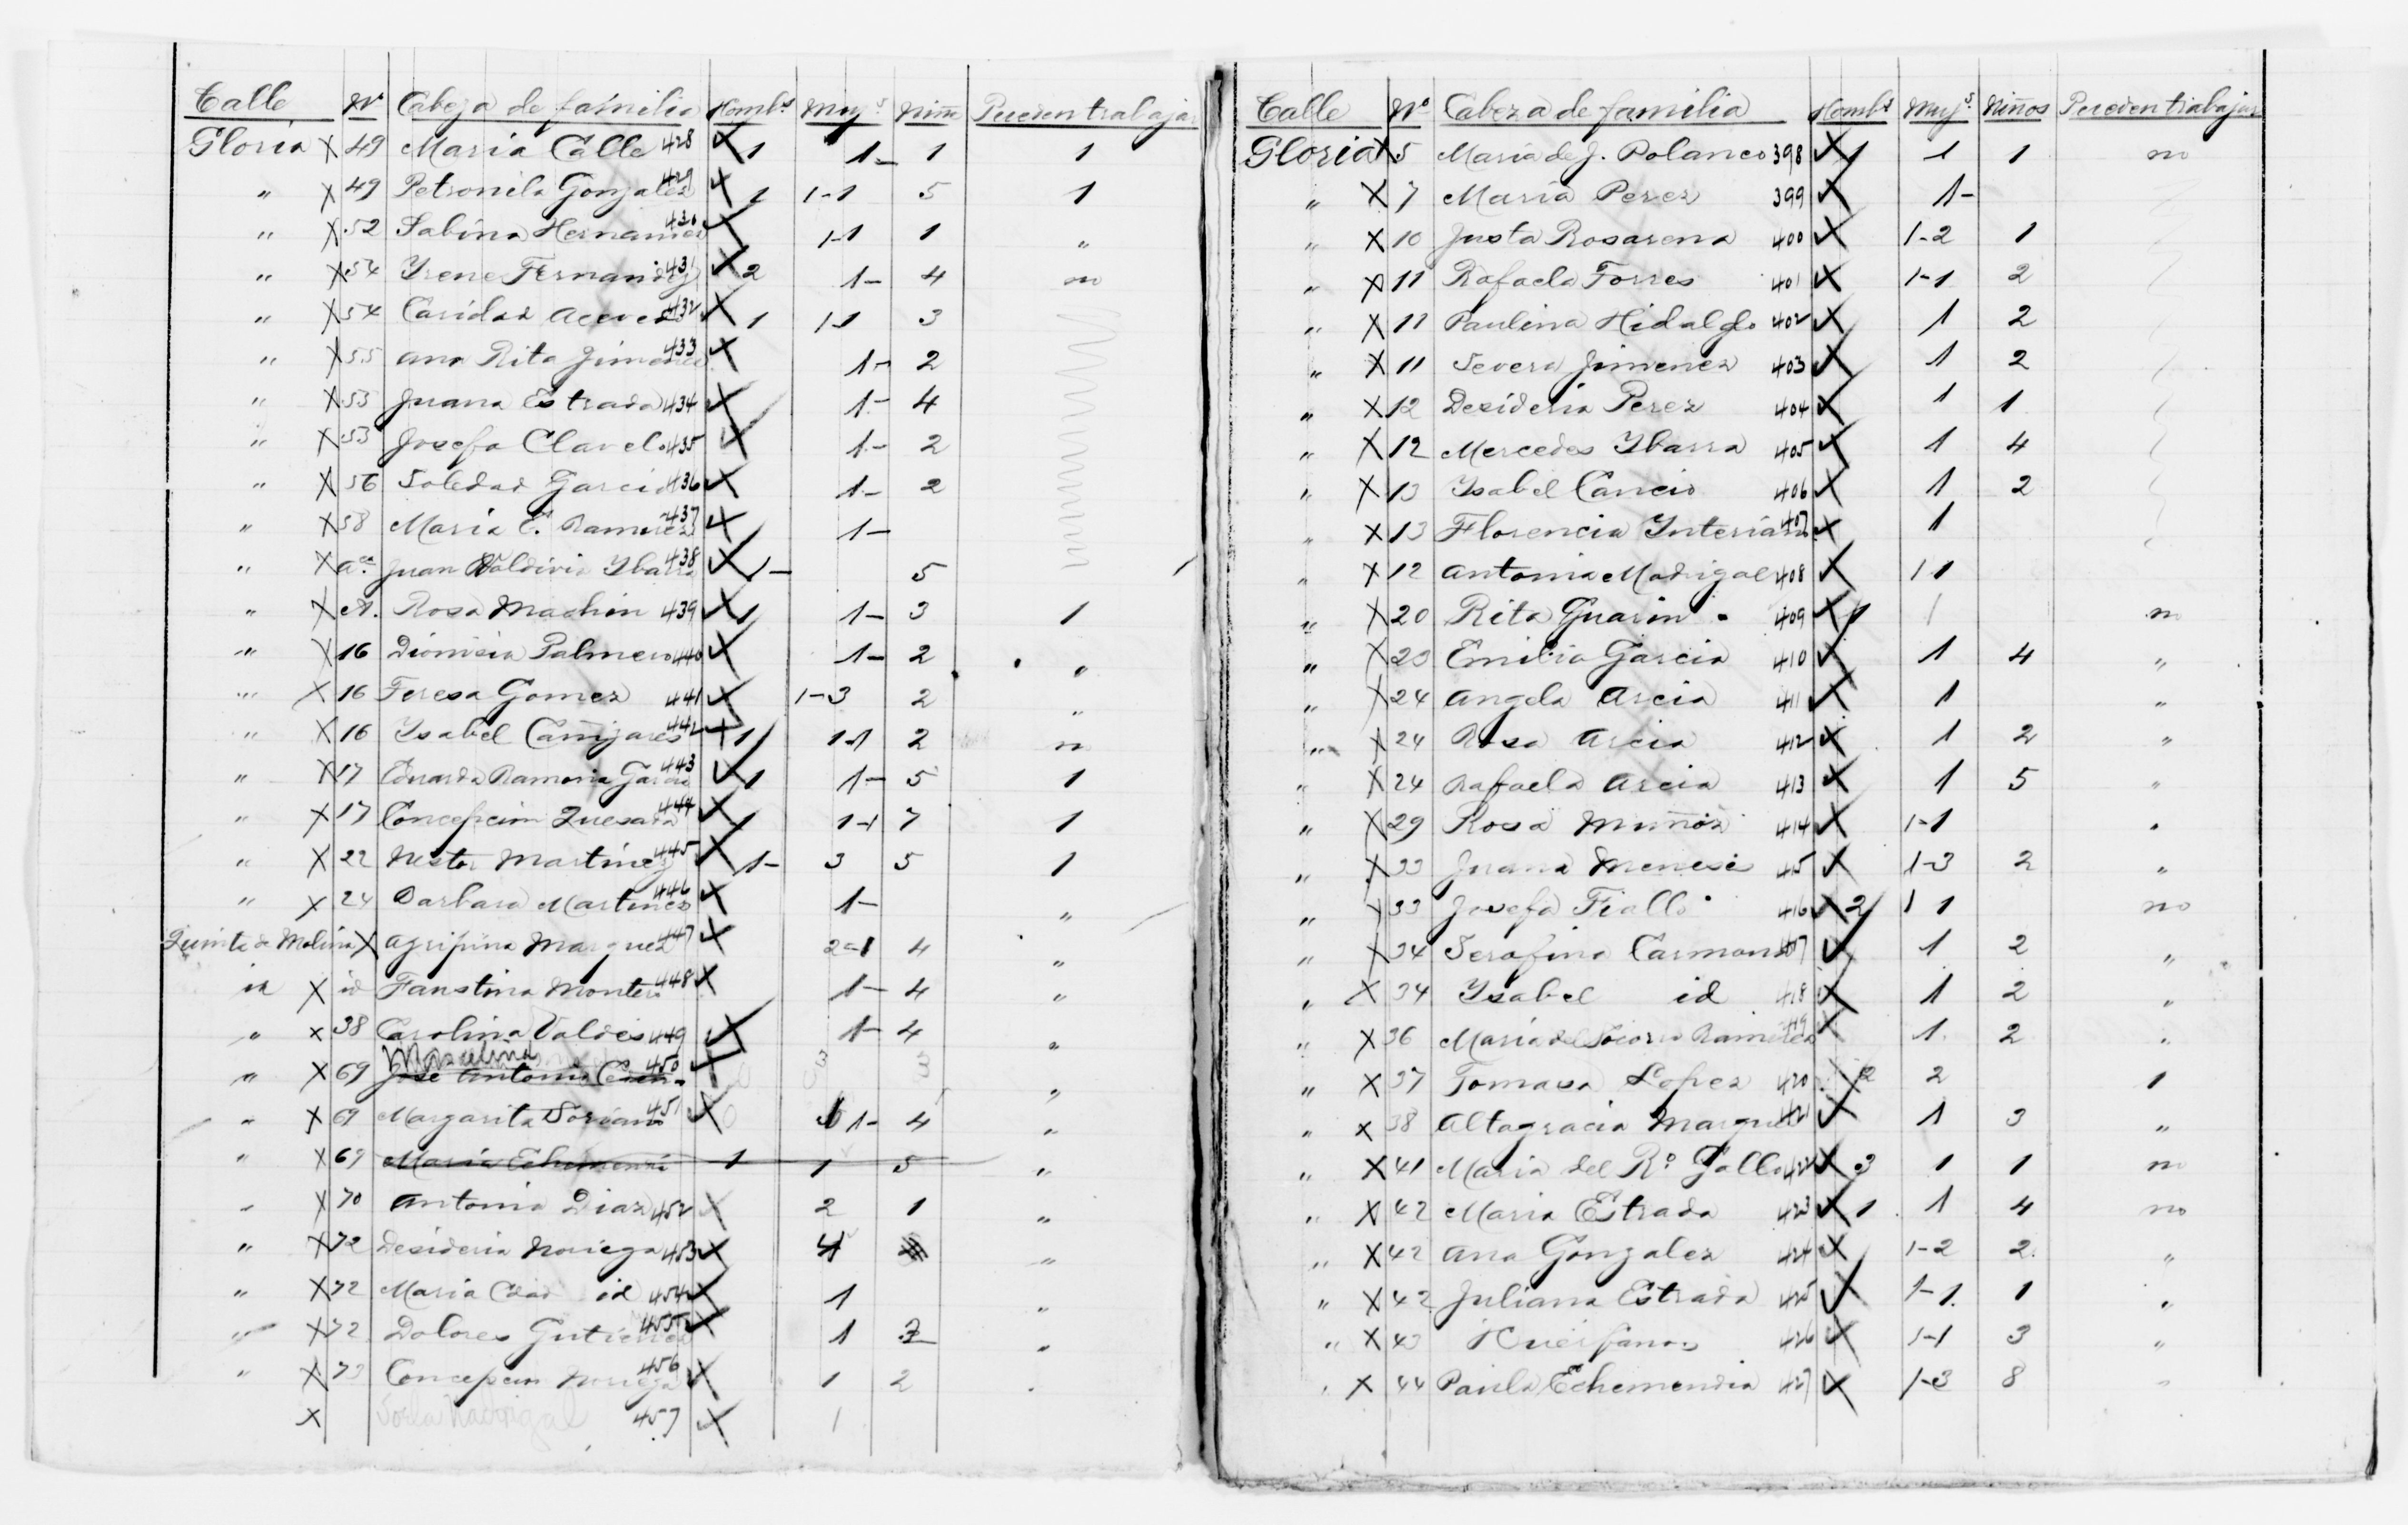 Calle Nº Cabeza de familia Hombs Mujs Niños Pueden trabajar
Gloria X 49 Maria Calle 428 X 1 1- 1 1
" X 49 Petronila Gonzalez 429 X 1 1-1 5 1
" X 52 Sabina Hernandez 430 X 1-1 1 "
" X 54 Yrene Fernandez 431 X 2 1- 4 no
" X 54 Caridad Aceved 432 X 1 1-1 3
" X 55 Ana Rita Jimenez 433 X 1- 2
" X 53 Juana Estrada 434 X 1- 4
" X 53 Josefa Clavelo 435 X 1- 2
" X 56 Soledad Garcia 436 X 1- 2
" X 58 Maria E. Ramirez 437 X 1-
" X aca Juan Valdivia Ybarra 438 X 1- 5
" X A. Rosa Machin 439 X 1 1- 3 1
" X 16 Dionisia Palmero 440 X 1- 2 "
" X 16 Teresa Gomez 441 X 1-3 2 "
" X 16 Ysabel Cañizares 442 X 1 1-1 2 no
" X 17 Eduarda Ramona Garcia 443 X 1 1- 5 1
" X 17 Concepcion Quesada 444 X 1 1-1 7 1
" X 22 Nestor Martinez 445 X 1- 3 5 1
" X 24 Barbara Martinez 446 X 1- "
Quinta de Molina X Agripina Marquez 447 X 2-1 4 "
id X id Faustina Montero 448 X 1- 4 "
" X 38 Carolina Valdes 449 X 1- 4 "
" X 69 Jose Antonio 450 X 3 3 "
" X 69 Margarita Soriano 451 X 1- 4 "
" X 69 Maria Echemendi 1 1 5 "
" X 70 Antonia Diaz 452 X 2 1 "
" X 72 Desideria Noriega 453 X "
" X 72 Maria Cdad id 454 X 1 "
" X 72 Dolores Gutierrez 455 X 1 2 "
" X 73 Concepcion Noriega 456 X 1 2 "
X Madrigal 457 X 1
Calle Nº Cabeza de familia Hombs Mujs Niños Pueden trabajar
Gloria X 5 Maria de J. Polanco 398 X 1 1 1 no
" X 7 Maria Perez 399 X 1-
" X 10 Justa Rosarena 400 X 1-2 1
" X 11 Rafaela Torres 401 X 1-1 2
" X 11 Paulina Hidalgo 402 X 1 2
" X 11 Severa Jimenez 403 X 1 2
" X 12 Desideria Perez 404 X 1 1
" X 12 Mercedes Ybarra 405 X 1 4
" X 13 Ysabel Cancio 406 X 1 2
" X 13 Florencia Ynterian 407 X 1
" X 12 Antonia Madrigal 408 X 1-1
" X 20 Rita Guarin 409 X 1 1 no
" X 23 Emilia Garcia 410 X 1 4 "
" X 24 Angela Arcia 411 X 1 "
" X 24 Rosa Arcia 412 X 1 2 "
" X 24 Rafaela Arcia 413 X 1 5 "
" X 29 Rosa Muñoz 414 X 1-1 "
" X 33 Juana Meneses 415 X 1-3 2 "
" X 33 Josefa Fiallo 416 X 2 1 1 no
" X 34 Serafina Carmona 417 X 1 2 "
" X 34 Ysabel id 418 X 1 2 "
" X 36 Maria del Socorro Ramirez 419 X 1 2 "
" X 37 Tomasa Lopez 420 X 2 2 1
" X 38 Altagracia Marquez 421 X 1 3 "
" X 41 Maria del Rº Gallo 422 X 3 1 1 no
" X 42 Maria Estrada 423 X 1 1 4 no
" X 42 Ana Gonzalez 424 X 1-2 2 "
" X 42 Juliana Estrada 425 X 1-1 1 "
" X 43 Huerfanos 426 X 1-1 3 "
" X 44 Paula Echemendia 427 X 1-3 8 "